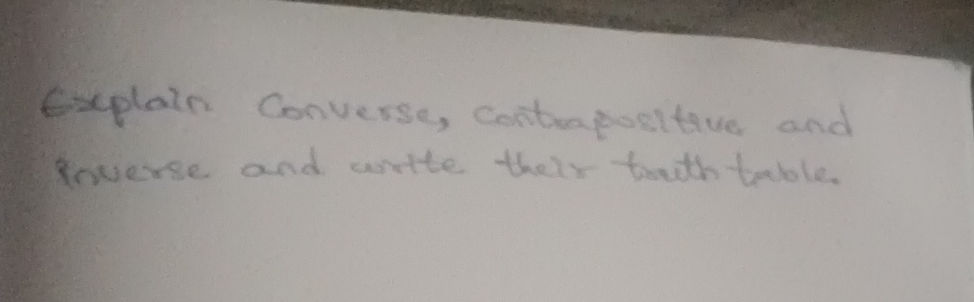 Explain Converse, Contrapositive and
inverse and write their truth table.